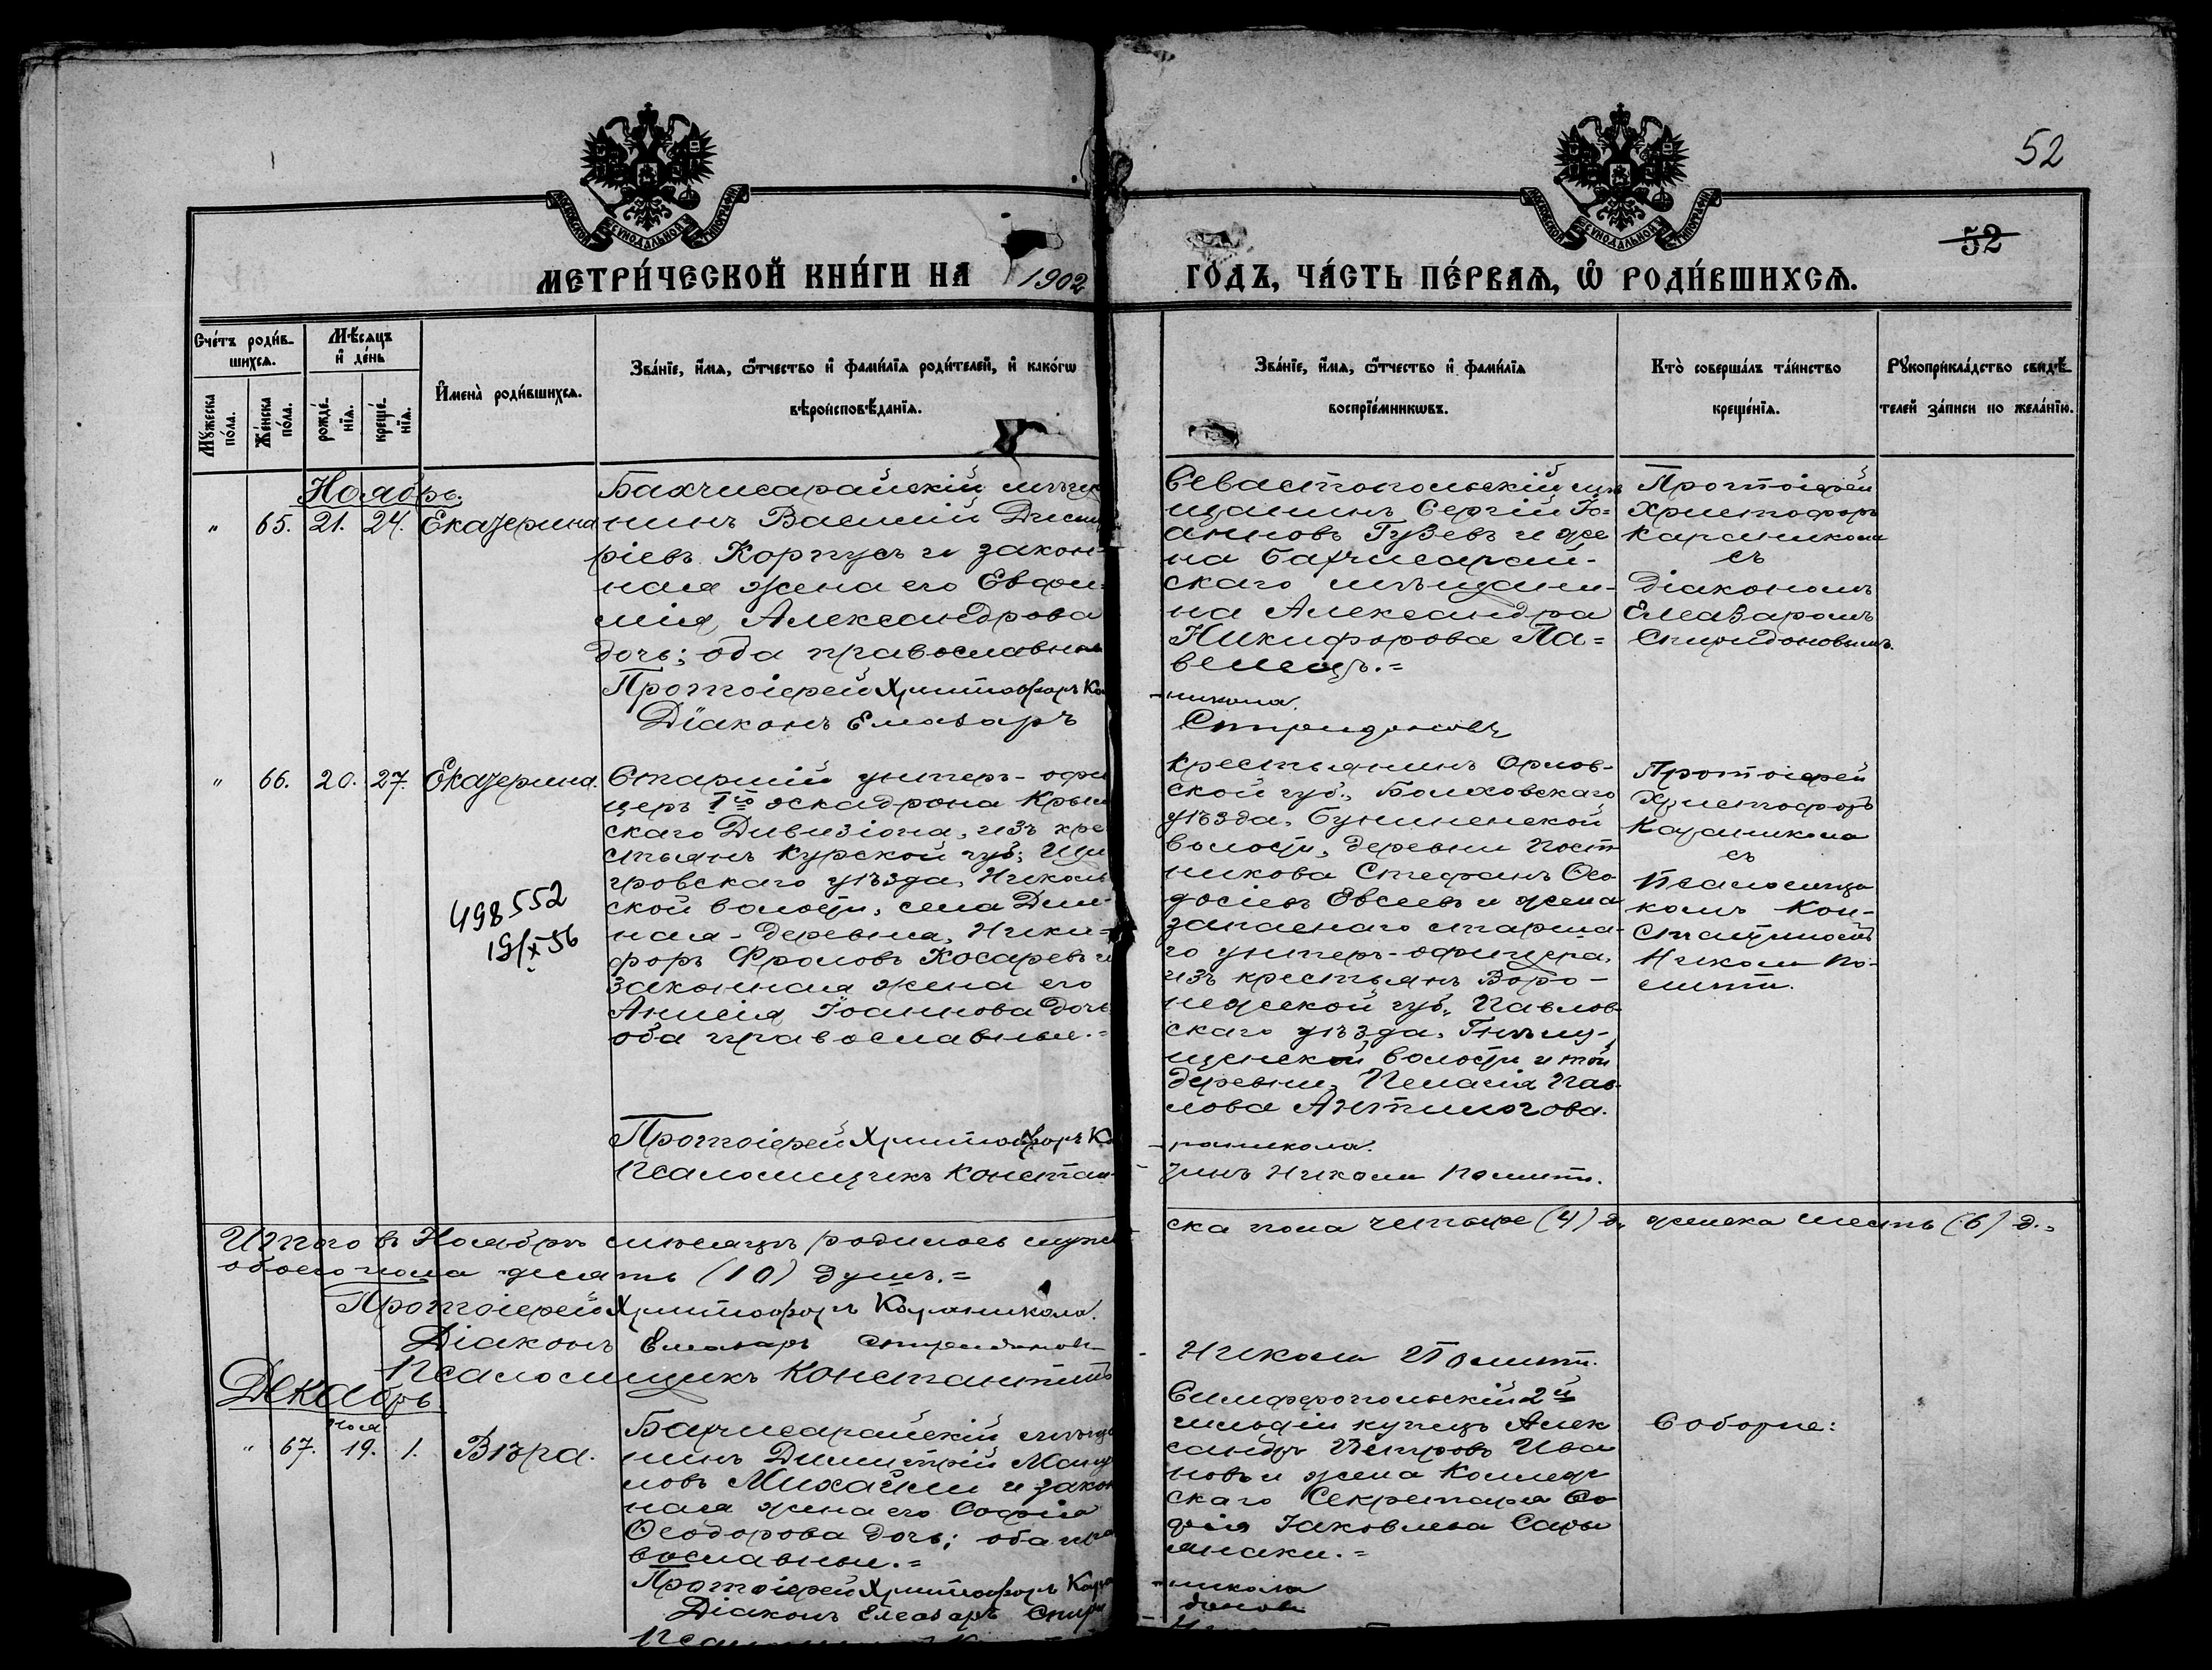 52
52
МОСКОВСКОЙ СѴНОДАЛЬНОЙ ТИПОГРАФІИ
МОСКОВСКОЙ СѴНОДАЛЬНОЙ ТИПОГРАФІИ
МЕТРИ́ЧЕСКОЙ КНИ́ГИ НА 1902 ГОДЪ, ЧА́СТЬ ПЕ́РВАѦ, Ѡ҆ РОДИ́ВШИХСѦ.
Сче́тъ роди́в-
шихсѧ.
Мꙋ́жеска по́ла.
Же́нска по́ла.
Мѣ́сѧцъ
и҆ де́нь
рожде́-
нїѧ.
креще́-
нїѧ.
И҆мена̀ роди́вшихсѧ.
Зва́нїе, и҆́мѧ, ѻ҆́тчество и҆ фами́лїѧ роди́телей, и҆ како́гѡ
вѣроисповѣ́данїѧ.
Зва́нїе, и҆́мѧ, ѻ҆́тчество и҆ фами́лїѧ
воспрїе́мникѡвъ.
Кто̀ соверша́лъ та́инство
креще́нїѧ.
Рꙋкоприкла́дство свидѣ́-
телей за́писи по жела́нїю.
Ноябрь.
" 65. 21. 24. Екатерина
Бахчисарайскій мѣща
нинъ Василій Дими
ріевъ Корпусъ и закон-
ная жена его Евфи-
мія Александрова
дочь; оба православны
Протоіерей Христофоръ Ка
Діаконъ Елеазаръ
Севастопольскій мѣ
щанинъ Сергій Іо=
анновъ Гузевъ и же
на бахчисарай-
скаго мѣщани-
на Александра
Никифорова
никола.
Спиридоновъ
Протоіерей
Христофоръ
Караникола
съ
Діакономъ
Елеазаромъ
Спиридоновымъ.
" 66. 20. 27. Екатерина.
Старшій унтеръ-офи
церъ 1го эскадрона Крым
скаго Дивизіона, изъ кре
стьянъ Курской губ; Щи
гровскаго уѣзда, Николь
ской волости, села Длин-
ная-деревня, Ники=
форъ Фроловъ Косаревъ и
законная жена его
Анисія Іоаннова дочь
оба православные.=
498552
19/X 56
Протоіерей Христофоръ Ка
Псаломщикъ Констан-
Крестьянинъ Орлов-
ской губ., Болховскаго
уѣзда, Бунинской
волости, деревни Пост
никова Стефанъ Ѳео
досіевъ Евсеевъ и жена
запаснаго старша-
го унтеръ-офицера,
изъ крестьянъ Воро-
нежской губ., Павлов-
скаго уѣзда,
волости и той
деревни, Пелагія Пав-
лова
раникола.
тинъ Николи Полити.
Протоіерей
Христофоръ
Караникола
съ
Псаломщи
комъ Кон-
стантиномъ
Николи По-
лити.
Итого въ Ноябрѣ мѣсяцѣ родилось муже
ска пола четыре (4) д, женска шесть (6) д.,
обоего пола десять (10) душъ.=
Протоіерей Христофоръ Караникола.
Діаконъ Елеазаръ Спиридоновъ
Псаломщикъ Константинъ
Николи Полити.
Декабрь
Ноя
" 67. 19. 1. Вѣра.
Бахчисарайскій мѣща
нинъ Димитрій
новъ Михайли и закон
ная жена его Софія
Ѳеодорова дочь; оба пра
вославные.=
Протоіерей Христофоръ Кара
Діаконъ Елеазаръ Спири
Симферопольскій 2й
гильдіи купецъ Алек
сандръ Петровъ Ива
новъ и жена Коллеж
скаго Секретаря Со
фія Іаковлева Сары
янаки.=
никола
доновъ
Соборне: